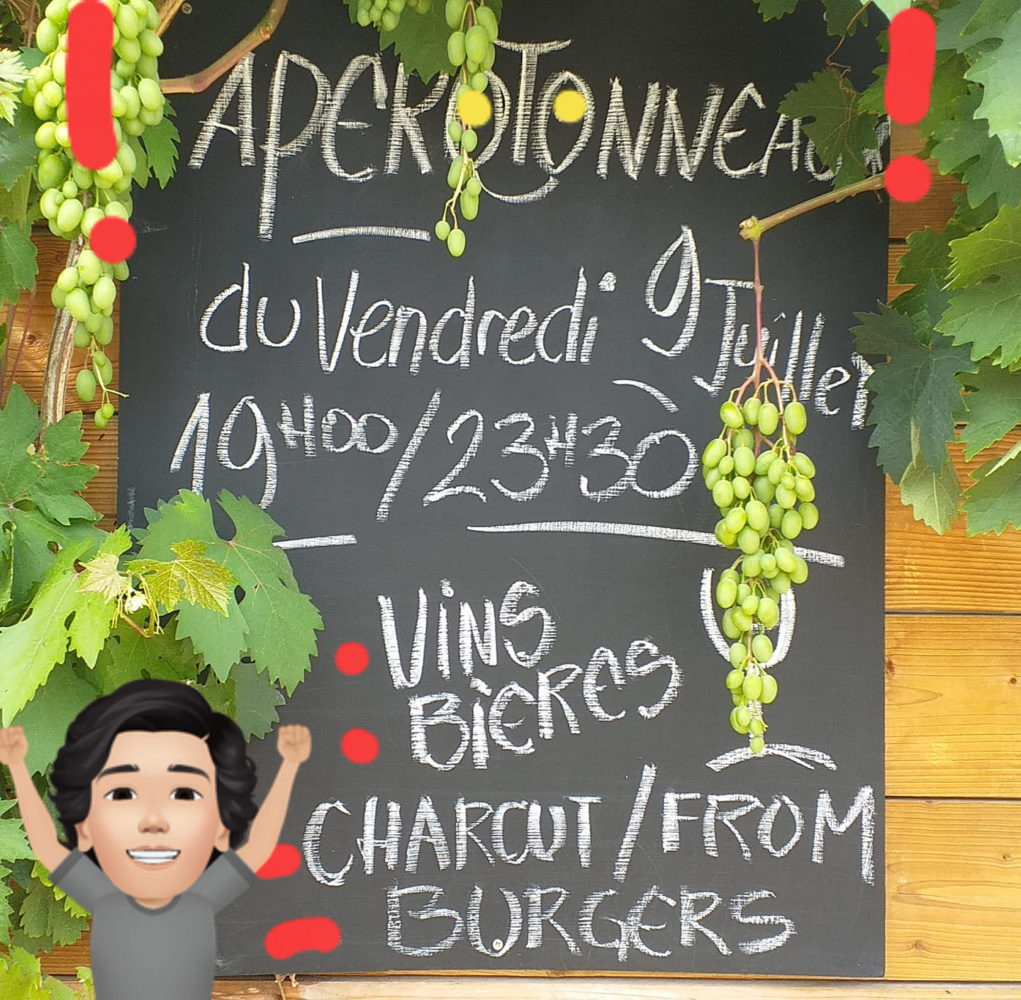 APEROTONNEAUX
du Vendredi 9 Juillet
19H00/23H30
VINS
BIÈRES
CHARCUT/FROM
BURGERS